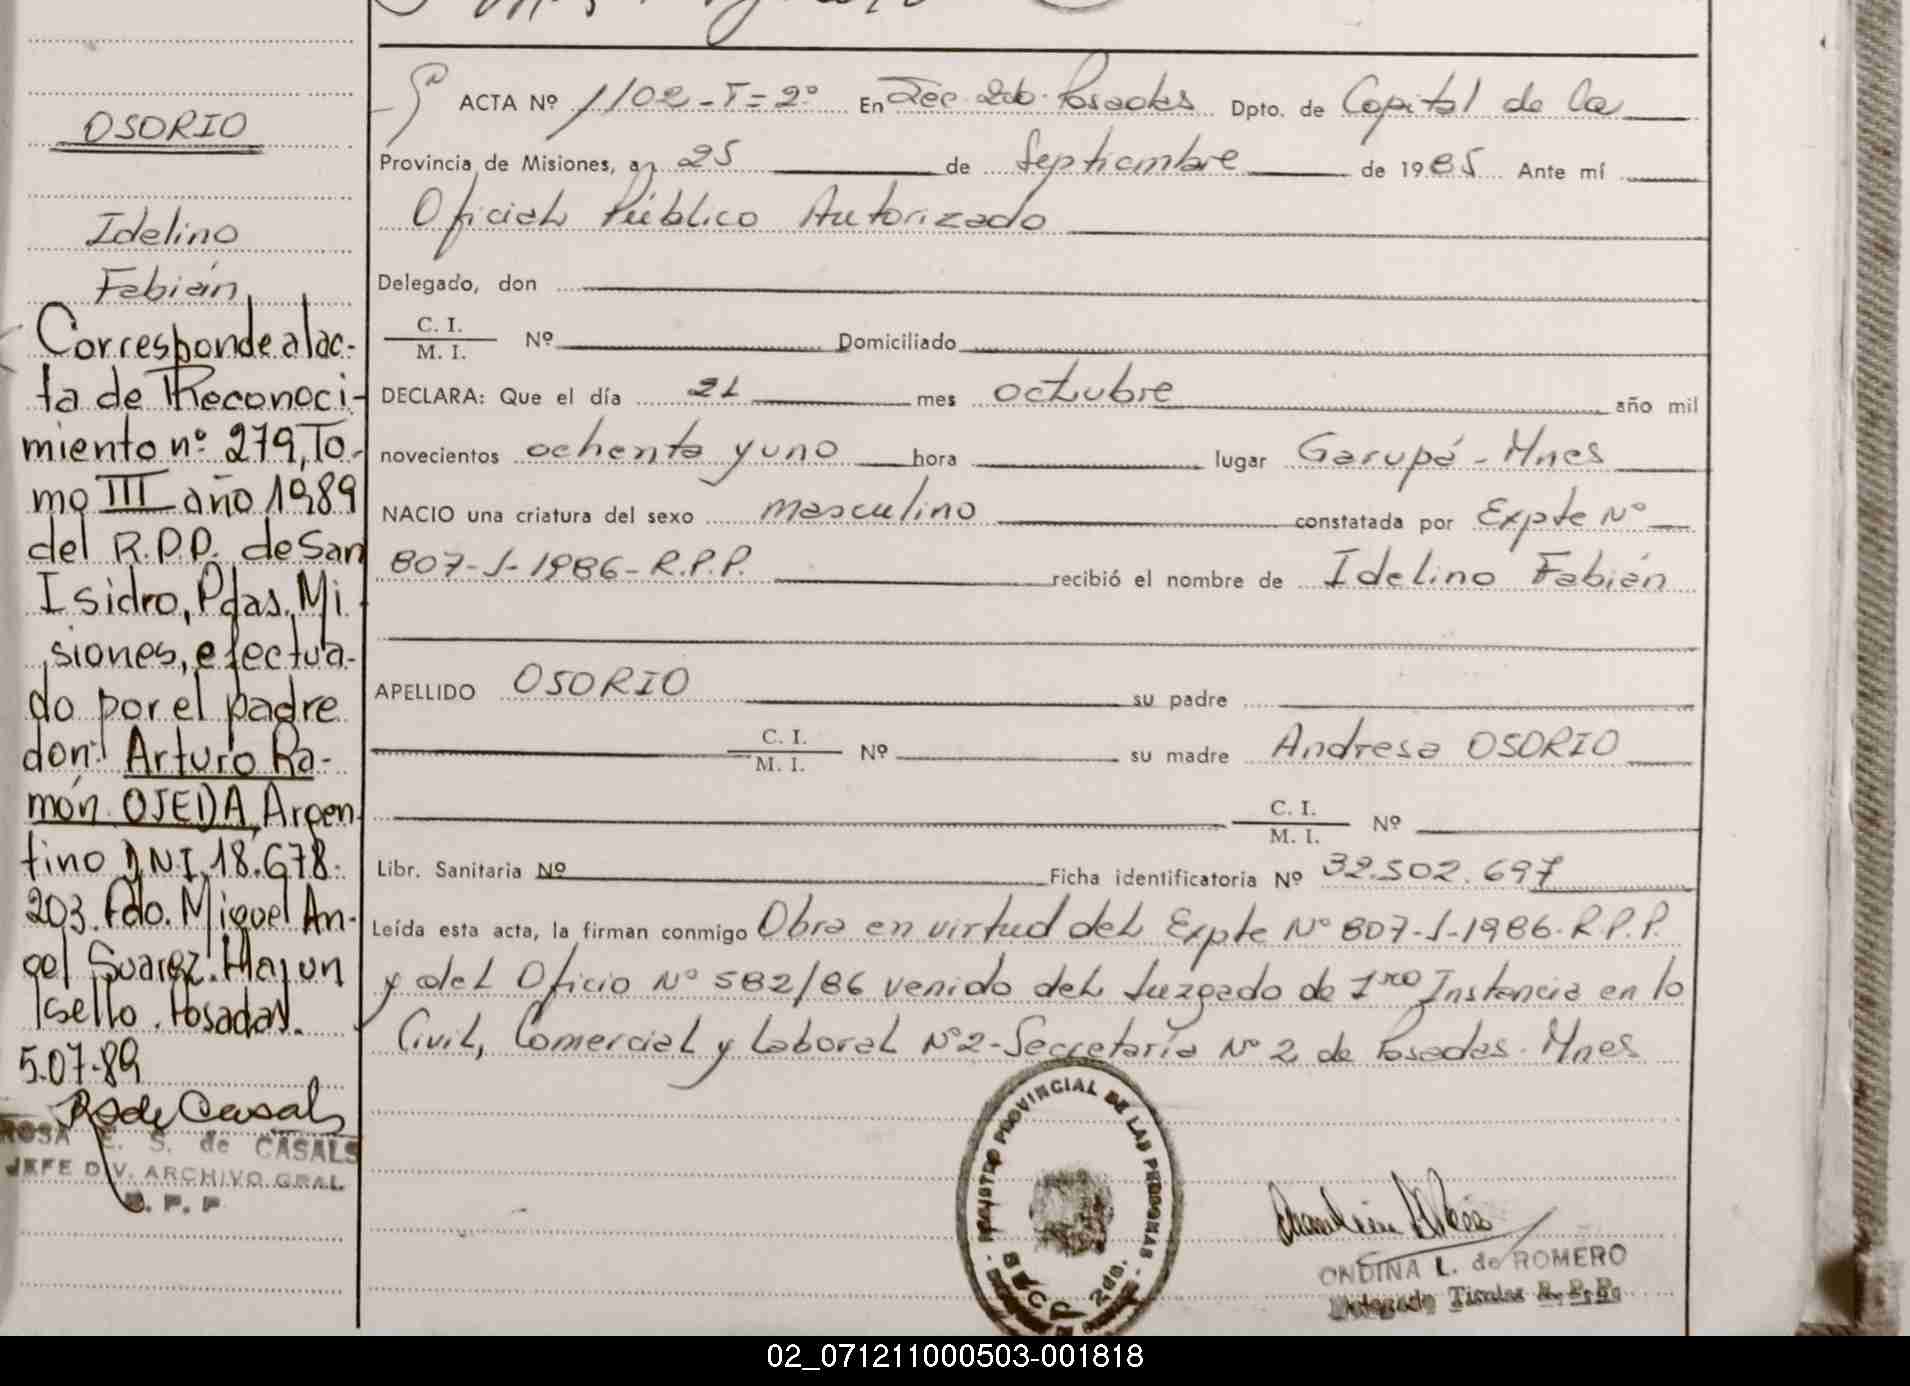 OSORIO
Idelino
Fabián
Corresponde al ac-
ta de Reconoci-
miento nº 279, To-
mo III año 1989
del R.P.P. de San
Isidro, Pdas. Mi-
siones, efectua-
do por el padre
don: Arturo Ra-
món OJEDA, Argen-
tino D.N.I. 18.678.
203. Fdo. Miguel An-
gel Suarez. Hay un
sello. Posadas.
5.07.89
R S de Casals
ROSA E. S. de CASALS
JEFE DIV. ARCHIVO GRAL
R. P. P
ACTA Nº 1102 - T = 2º En Sec. 2da. Posadas Dpto. de Capital de la
Provincia de Misiones, a 25 de Septiembre de 1985 Ante mí
Oficial Público Autorizado
Delegado, don
C. I.
M. I. Nº Domiciliado
DECLARA: Que el día 21 mes octubre año mil
novecientos ochenta y uno hora lugar Garupá - Mnes
NACIO una criatura del sexo masculino constatada por Expte Nº
807-J-1986-R.P.P. recibió el nombre de Idelino Fabián
APELLIDO OSORIO su padre
C. I.
M. I. Nº su madre Andresa OSORIO
C. I.
M. I. Nº
Libr. Sanitaria Nº Ficha identificatoria Nº 32.502.697
Leída esta acta, la firman conmigo Obra en virtud del Expte Nº 807-J-1986-R.P.P.
y del Oficio Nº 582/86 venido del Juzgado de 1ra Instancia en lo
Civil, Comercial y Laboral Nº 2 - Secretaría Nº 2 de Posadas. Mnes
REGISTRO PROVINCIAL DE LAS PERSONAS
SECC. 2da.
ONDINA L. de ROMERO
Delegado Titular R.P.P.
02_071211000503-001818